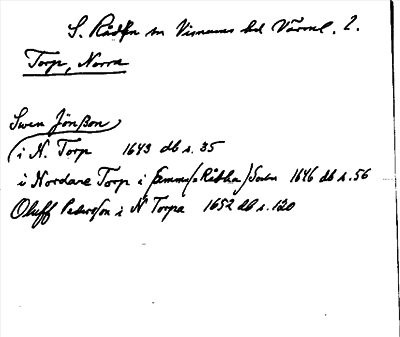 S. Råda sn Visnums hd Värml. 2.
Torp, Norra
Swen Jönßon
i N. Torp 1643 db s. 35
i Nordare Torp i Socken 1646 db s. 56
Oluff Pederson i N Torpa 1652 db s. 120